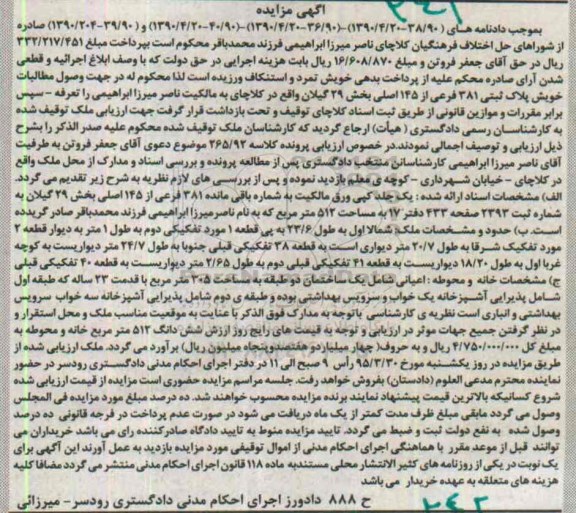 آگهی مزایده
بموجب دادنامه های (۳۸/۹۰-۱۳۹۰/۴/۲۰)-(۳۶/۹۰-۱۳۹۰/۴/۲۰)-(۴۰/۹۰-۱۳۹۰/۴/۲۰) و (۳۹/۹۰-۱۳۹۰/۲۰۴) صادره
از شوراهای حل اختلاف فرهنگیان کلاچای ناصر میرزا ابراهیمی فرزند محمدباقر محکوم است بپرداخت مبلغ ۳۳۲/۲۱۷/۴۵۱
ریال در حق آقای جعفر فروتن و مبلغ ۱۶/۶۰۸/۸۷۰ ریال بابت هزینه اجرایی در حق دولت که با وصف ابلاغ اجرائیه و قطعی
شدن آرای صادره محکم علیه از پرداخت بدهی خویش تمرد و استنکاف ورزیده است لذا محکوم له در جهت وصول مطالبات
خویش پلاک ثبتی ۳۸۱ فرعی از ۱۴۵ اصلی بخش ۲۹ گیلان واقع در کلاچای به مالکیت ناصر میرزا ابراهیمی را تعرفه - سپس
برابر مقررات و موازین قانونی از طریق ثبت اسناد کلاچای توقیف و تحت بازداشت قرار گرفت جهت ارزیابی ملک توقیف شده
به کارشناسان رسمی دادگستری (هیأت) ارجاع گردید که کارشناسان ملک توقیف شده محکوم علیه صدر الذکر را بشرح
ذیل ارزیابی و توصیف اجمالی نمودند.در خصوص ارزیابی پرونده کلاسه ۲۶۵/۹۲ موضوع دعوی آقای جعفر فروتن به طرفیت
آقای ناصر میرزا ابراهیمی کارشناسان منتخب دادگستری پس از مطالعه پرونده و بررسی اسناد و مدارک از محل ملک واقع
در کلاچای - خیابان شهرداری - کوچه ی معلم بازدید نموده و پس از بررسی های لازم نظریه به شرح زیر تقدیم می گردد.
الف) مشخصات اسناد ارائه شده : یک جلد کپی ورق مالکیت به شماره باقی مانده ۳۸۱ فرعی از ۱۴۵ اصلی بخش ۲۹ گیلان به
شماره ثبت ۲۳۹۳ صفحه ۴۳۳ دفتر ۱۷ به مساحت ۵۱۲ متر مربع که به نام ناصر میرزا ابراهیمی فرزند محمدباقر صادر گردیده
است. ب) حدود و مشخصات ملک : شمالا اول به طول ۲۳/۶ به پی قطعه ۱ مورد تفکیکی دوم به طول ۱ متر به دیوار قطعه ۲
مورد تفکیک شرقا به طول ۲۰/۷ متر دیواری است به قطعه ۳۸ تفکیکی قبلی جنوبا به طول ۲۴/۷ متر دیواریست به کوچه
غربا اول به طول ۱۸/۲۰ دیواریست به قطعه ۴۱ تفکیکی قبلی دوم به طول ۲/۶۵ متر دیواریست به قطعه ۴۰ تفکیکی قبلی
ج) مشخصات خانه و محوطه : اعیانی شامل یک ساختمان دو طبقه به مساحت ۳۰۵ متر مربع با قدمت ۲۳ ساله که طبقه اول
شامل پذیرایی آشپزخانه یک خواب و سرویس بهداشتی بوده و طبقه ی دوم شامل پذیرایی آشپزخانه سه خواب سرویس
بهداشتی و انباری است نظریه ی کارشناسی باتوجه به مدارک فوق الذکر با عنایت به موقعیت مناسب ملک و محل استقرار و
در نظر گرفتن جمیع جهات موثر در ارزیابی و توجه به قیمت های رایج روز ارزش شش دانگ ۵۱۲ متر مربع خانه و محوطه به
مبلغ کل ۴/۷۵۰/۰۰۰/۰۰۰ ریال و به حروف( چهار میلیارد و هفتصد و پنجاه میلیون ریال) برآورد می گردد. ملک ارزیابی شده از
طریق مزایده در روز یکشنبه مورخ ۹۵/۳/۳۰ رأس ۹ صبح الی ۱۱ در دفتر اجرای احکام مدنی دادگستری رودسر در حضور
نماینده محترم مدعی العلوم (دادستان) بفروش خواهد رفت. جلسه مراسم مزایده حضوری است مزایده از قیمت ارزیابی شده
شروع کسانیکه بالاترین قیمت پیشنهاد نمایند برنده مزایده محسوب خواهند شد. ده درصد مبلغ مورد مزایده فی المجلس
وصول می گردد مابقی مبلغ ظرف مدت کمتر از یک ماه دریافت می شود در صورت عدم پرداخت در فرجه قانونی ده درصد
وصول شده به نفع دولت ثبت و ضبط می گردد. تایید مزایده منوط به تایید دادگاه صادرکننده رای می باشد خریداران می
توانند قبل از موعد مقرر با هماهنگی اجرای احکام مدنی از اموال توقیفی مورد مزایده بازدید به عمل آورند این آگهی برای
یک نوبت در یکی از روزنامه های کثیر الانتشار محلی مستندبه ماده ۱۱۸ قانون اجرای احکام مدنی منتشر می گردد مضافا کلیه
هزینه های متعلقه به عهده خریدار می باشد
ح ۸۸۸ دادورز اجرای احکام مدنی دادگستری رودسر- میرزائی